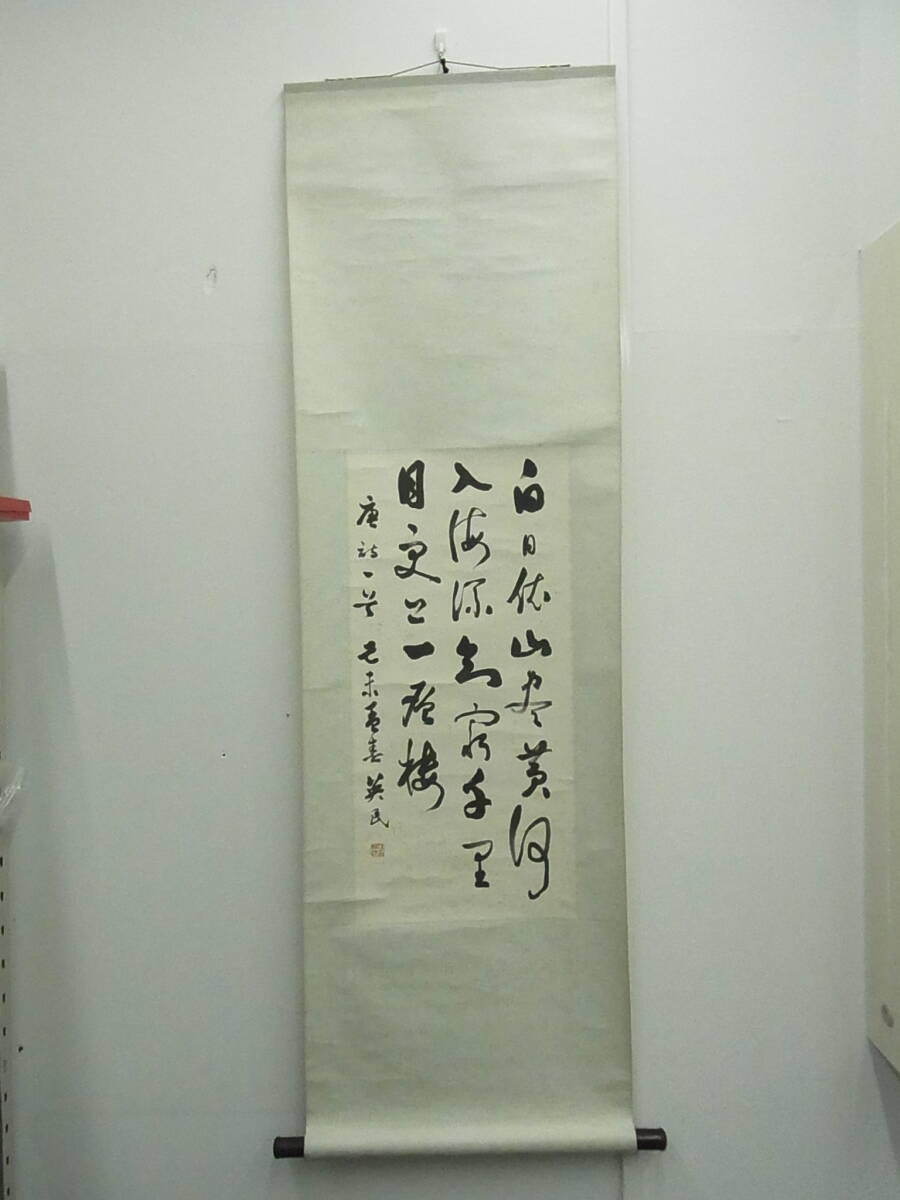 白日依山尽黄河
入海流欲穷千里
目更上一层楼
唐诗一首 己未孟春 英民